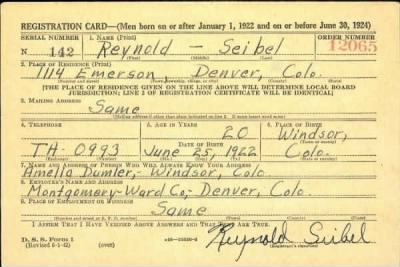 REGISTRATION CARD—(Men born on or after January 1, 1922 and on or before June 30, 1924)
SERIAL NUMBER 1. NAME (Print) ORDER NUMBER
N 142 Reynold — Seibel 12065
(First) (Middle) (Last)
2. PLACE OF RESIDENCE (Print)
1114 Emerson, Denver, Colo.
(Number and street) (Town, township, village, or city) (County) (State)
[THE PLACE OF RESIDENCE GIVEN ON THE LINE ABOVE WILL DETERMINE LOCAL BOARD
JURISDICTION; LINE 2 OF REGISTRATION CERTIFICATE WILL BE IDENTICAL]
3. MAILING ADDRESS
Same
[Mailing address if other than place indicated on line 2. If same insert word same]
4. TELEPHONE 5. AGE IN YEARS 6. PLACE OF BIRTH
20 Windsor,
TA-0993 June 25, 1922 Colo.
7. NAME AND ADDRESS OF PERSON WHO WILL ALWAYS KNOW YOUR ADDRESS
Amelia Dumler,- Windsor, Colo.
8. EMPLOYER'S NAME AND ADDRESS
Montgomery-Ward Co,- Denver, Colo
9. PLACE OF EMPLOYMENT OR BUSINESS
Same
(Number and street or R. F. D. number) (Town) (County) (State)
I AFFIRM THAT I HAVE VERIFIED ABOVE ANSWERS AND THAT THEY ARE TRUE.
D. S. S. Form 1
(over)
Reynold Seibel
(Registrant's signature)